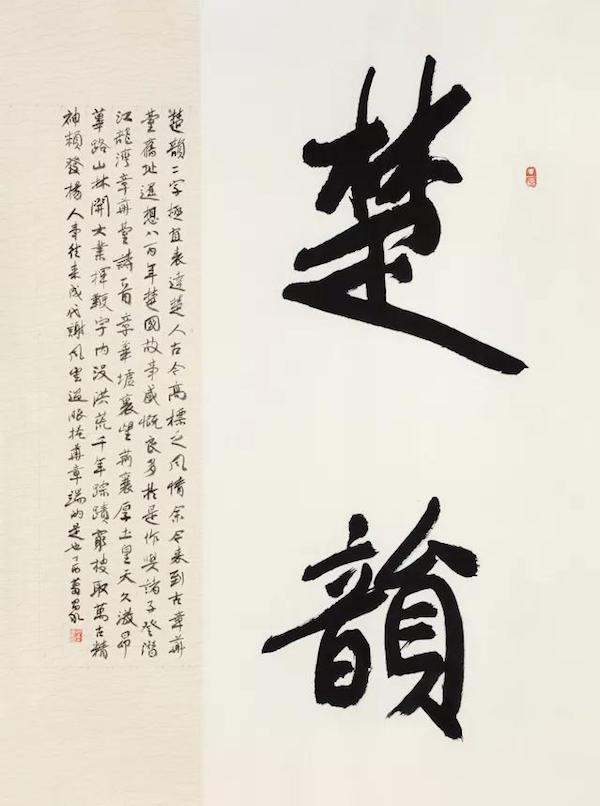 楚韻
楚韻二字極宜表達楚人古今高標之風情余今來到古章華
臺舊址遥想八百年楚國故事感慨良多於是作與諸子登潛
江龍灣章華臺詩一首章華墟裏望荊襄厚土皇天久激昂
蓽路山林開大業揮宇内没洪荒千年踪蹟窮披取萬古精
神賴發揚人事往來成代謝風雲過眼華章端的是也